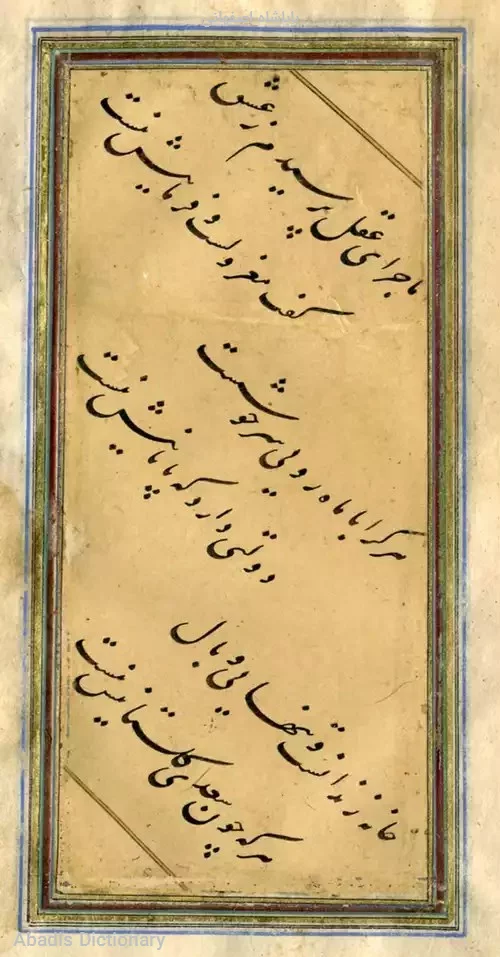 ماجرای عقل پرسیدم ز عشق
گفت معزولست و فرمانیش نیست
هر کرا با ماه رویی سرخوشست
دولتی دارد که پایانیش نیست
خانه زندانست و تنهایی وبال
هر که چون سعدی گلستانیش نیست
Abadis Dictionary